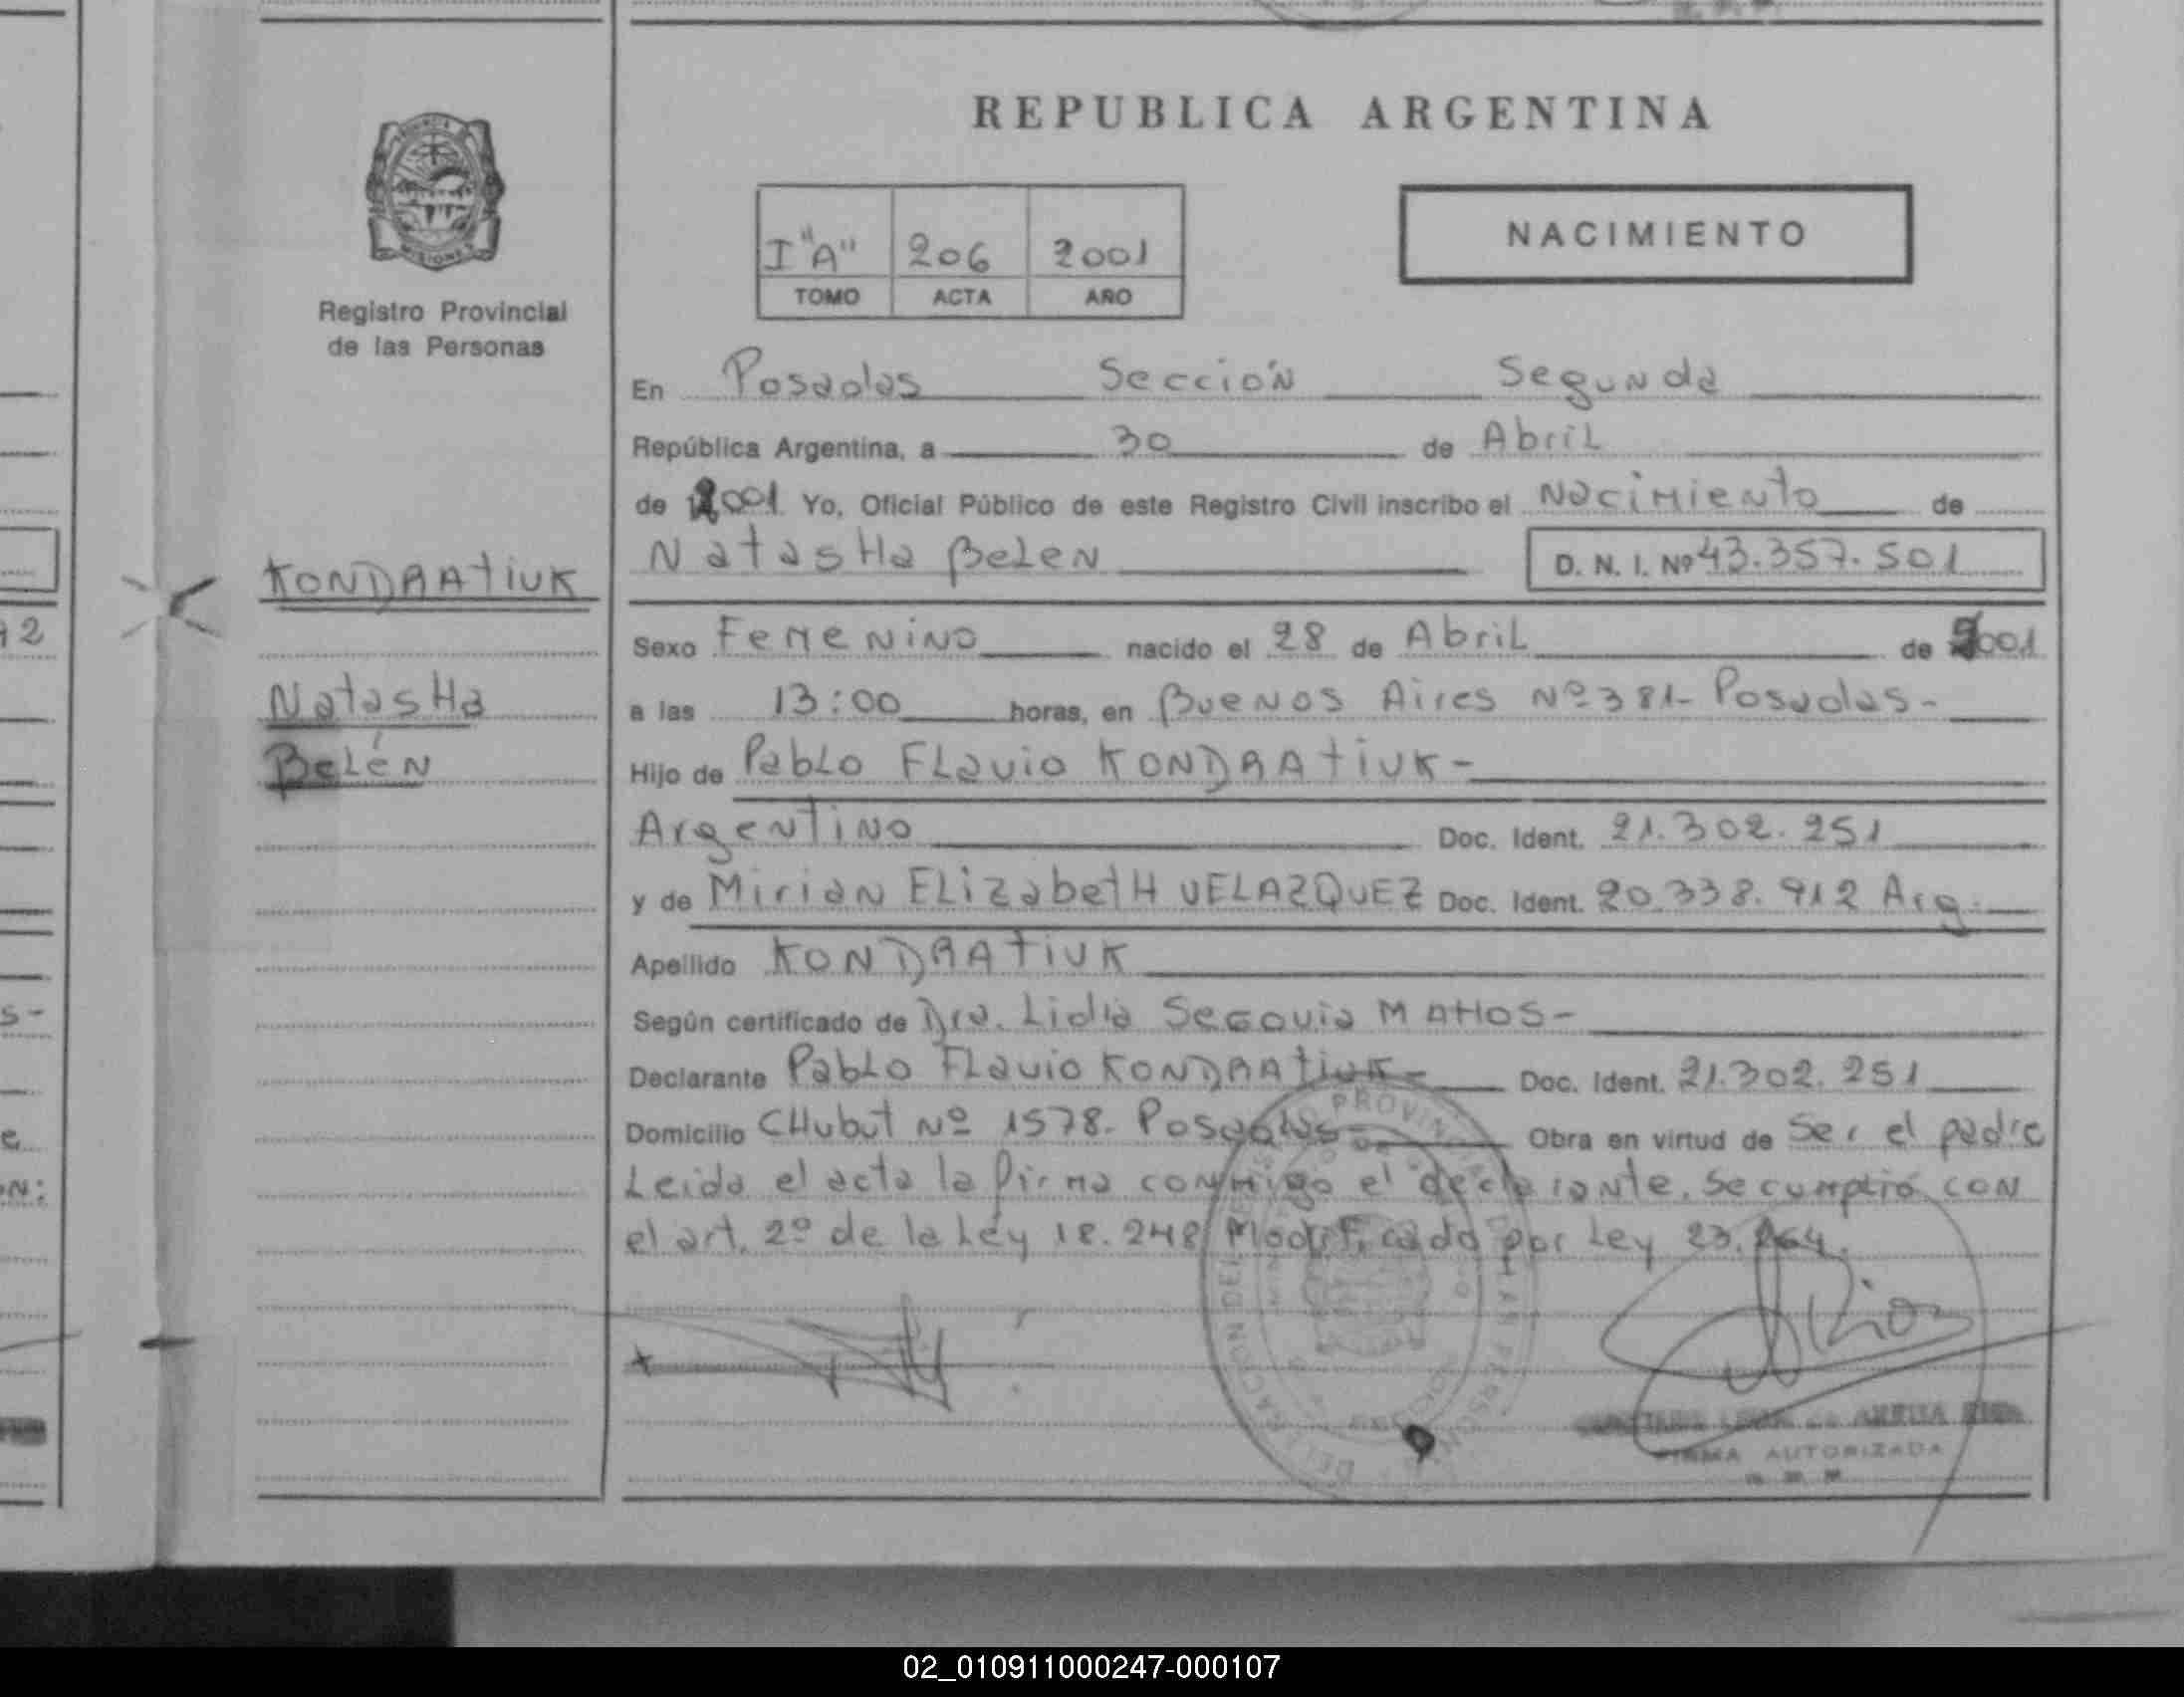 REPUBLICA ARGENTINA
NACIMIENTO
I "A" 206 2001
TOMO ACTA AÑO
PROVINCIA
MISIONES
Registro Provincial
de las Personas
KONDRATIUK
NatasHa
Belén
En Posadas Sección Segunda
República Argentina, a 30 de Abril
de 2001 Yo, Oficial Público de este Registro Civil inscribo el NaciMiento de
NatasHa BeLeN D. N. I. Nº 43.357.501
Sexo FeMeNiNo nacido el 28 de AbriL de 2001
a las 13:00 horas, en BueNos Aires Nº 381- Posadas-
Hijo de PabLo FLavio KONDRATIUK-
ArgentiNo Doc. Ident. 21.302.251
y de MiriaN ELizabetH VELAZQUEZ Doc. Ident. 20.338.912 Arg.
Apellido KONDRATIUK
Según certificado de Dra. Lidia Segovia MAttOS-
Declarante PabLo FLavio KONDRATIUK- Doc. Ident. 21.302.251
Domicilio CHubut Nº 1578. Posadas Obra en virtud de Ser el padre
Leida el acta la firma conmigo el declarante. Se cumplió con
el art. 2º de la Ley 18.248 Modificado por Ley 23.264.
Rios
FIRMA AUTORIZADA
02_010911000247-000107